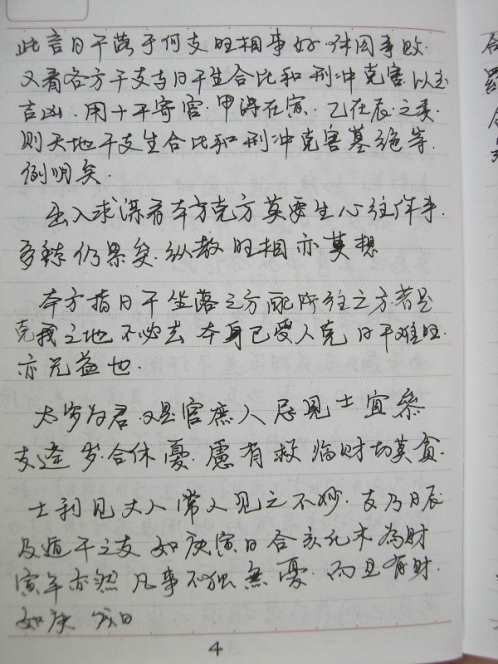 此言日干落于何支旺相事好 休囚事败
又看各方干支与日干生合比和刑冲克害以定
吉凶.用十干寄官.甲课在寅.乙在辰之类
则天地干支生合比和刑冲克害墓绝等.
例明矣.
出入求谋看本方克方莫要生心往作事.
多转仍累矣.纵教旺相亦莫想
本方指日干坐落之方配所往之方若是
克我之地不必去 本身已受人克 日干难旺.
亦无益也.
太岁为君又是官庶人忌见士宜参
支逢岁合休憂.慮有救临财切莫贪.
士利见大人常人见之不妙.支乃日辰
及遁干之支 如庚寅日合亥化木為财
寅年亦然 凡事不独無憂.而且有财.
如庚 日
4